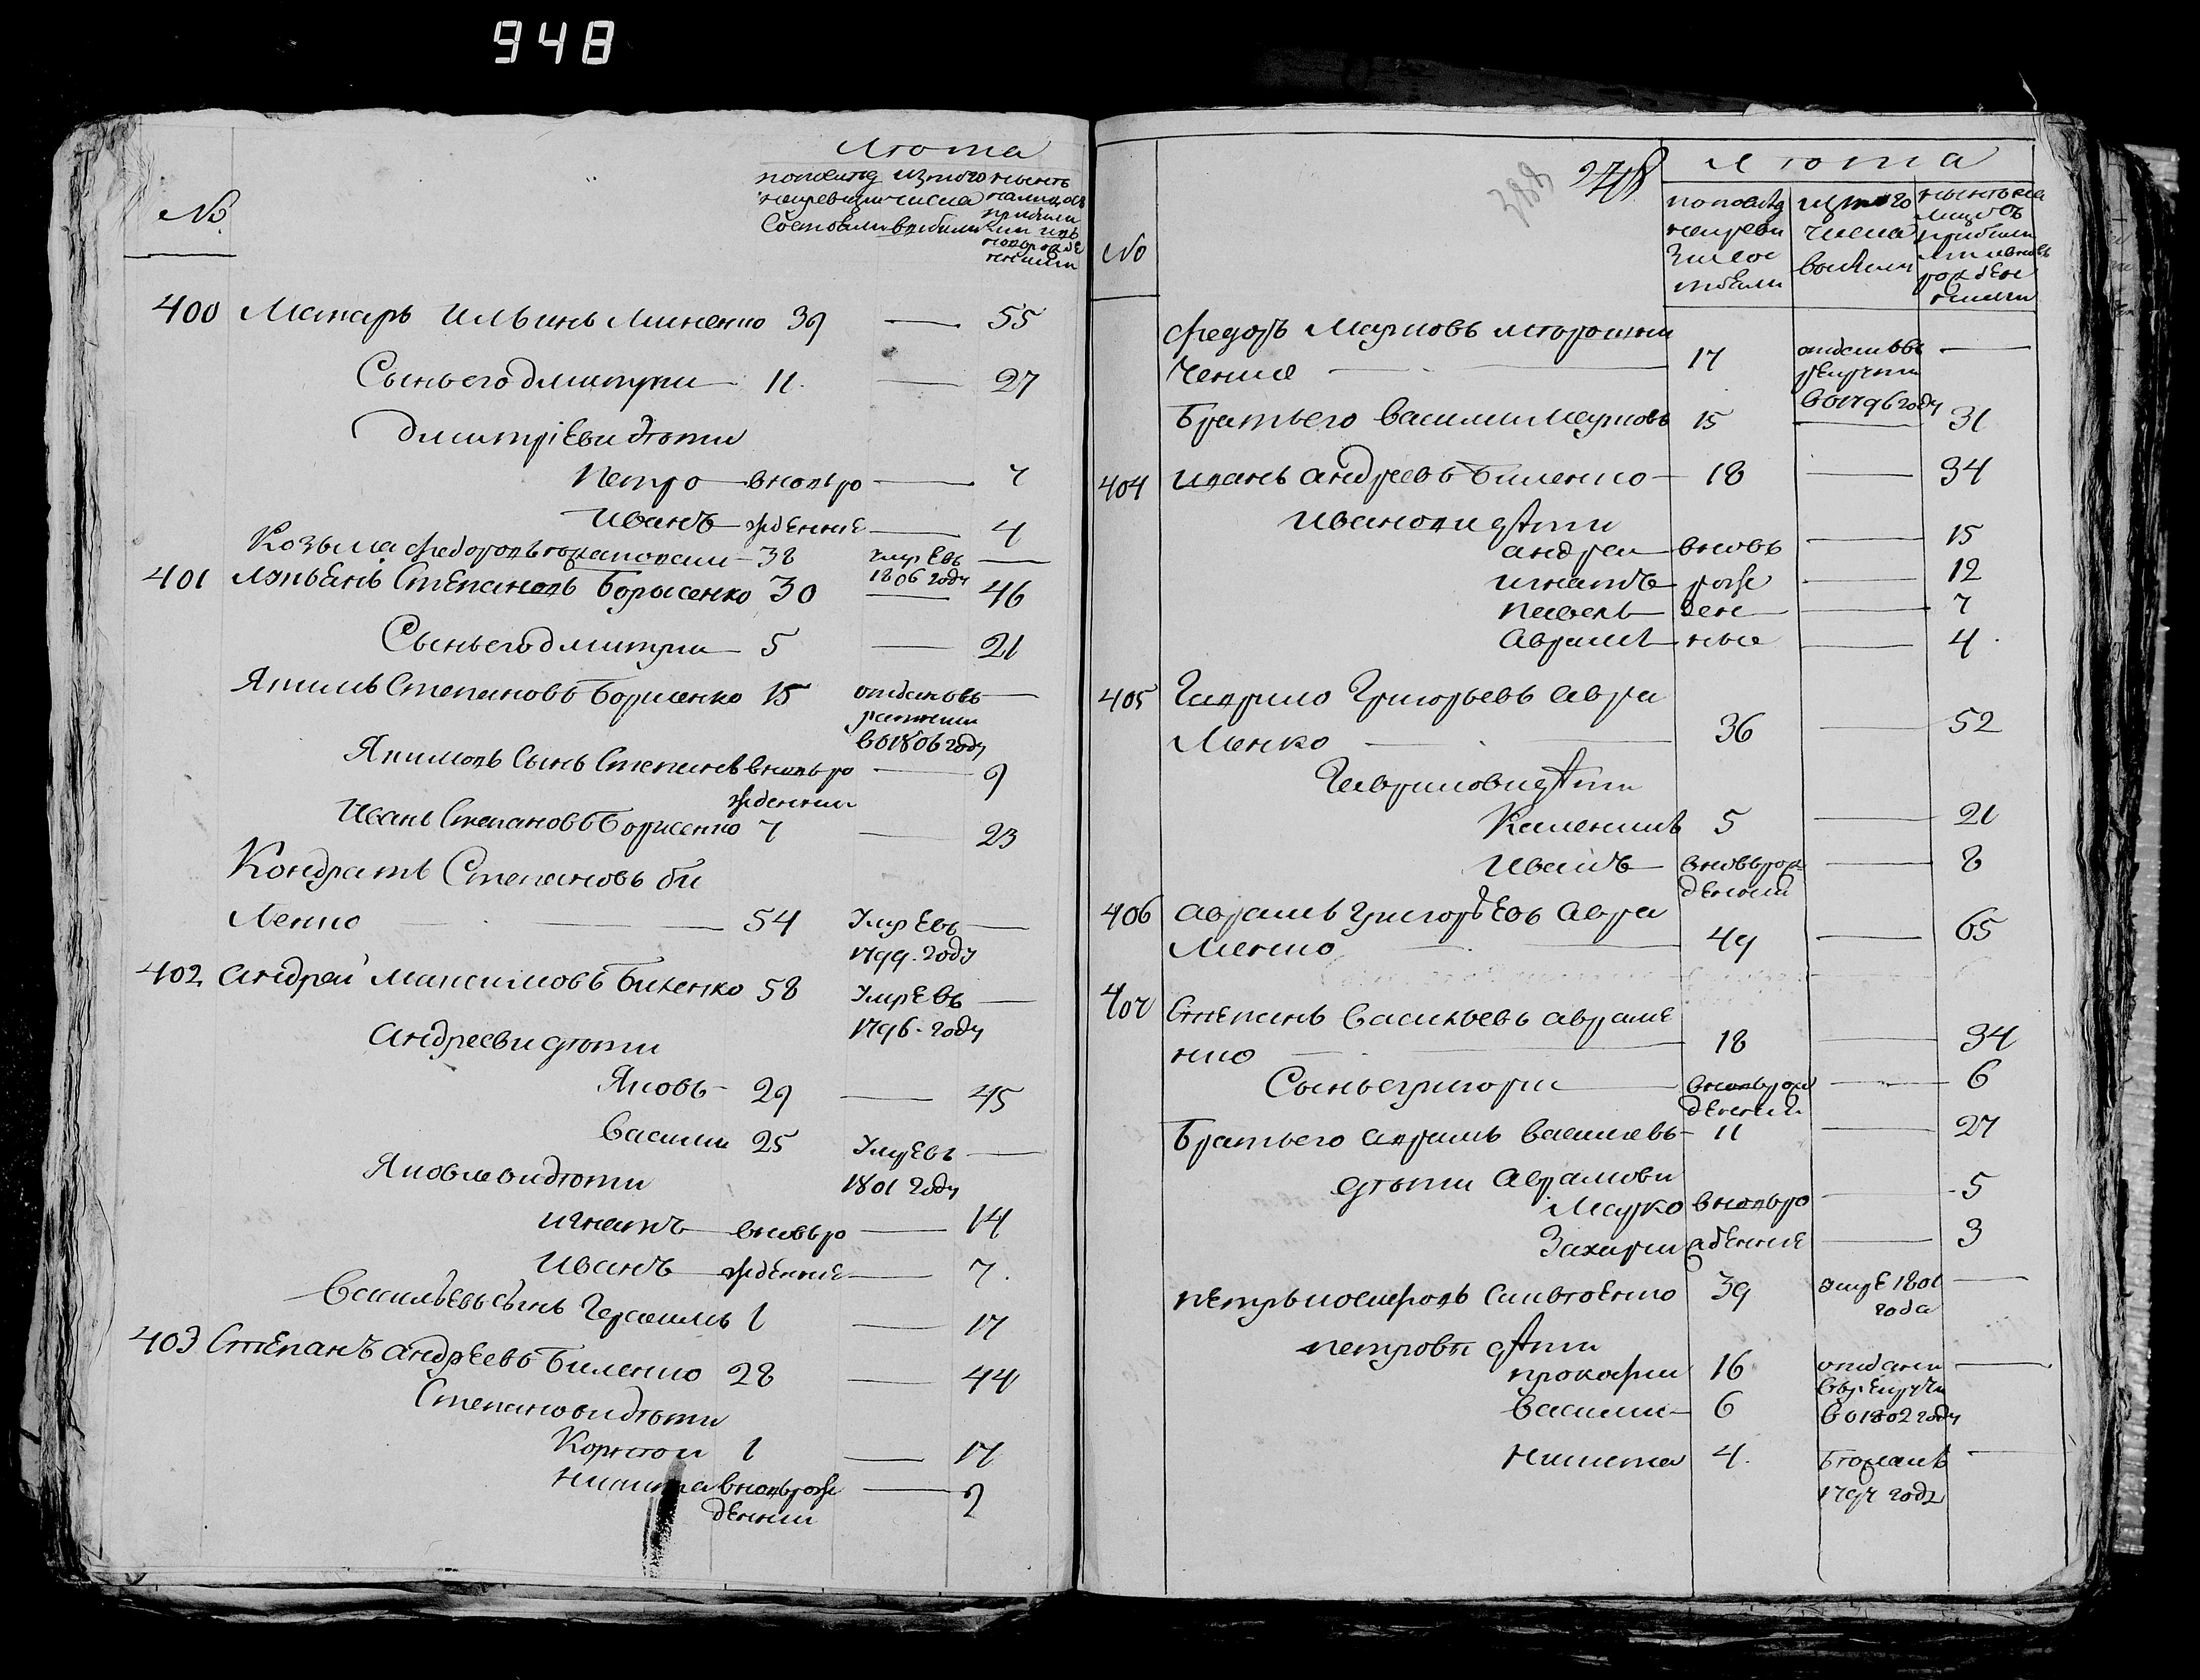 948
Лѣта
№
по последней ревизии состояли
изтого числа выбыли
ныне налицо с прибылими и новорожденними
400 Макаръ Ильинъ Миненко 39 — 55
Сынъ его дмитрий 11 — 27
дмитріеви дѣти
Петро вновьро — 7
Иванъ жденние — 4
Козьма федоровъ 38 умревъ —
1806 году
401 Степановъ Борисенко 30 — 46
Сынъ его дмитрий 5 — 21
Якимъ Степановъ Борисенко 15 отдановъ —
ратники
во 1806 году
Якимовъ сынъ Степанъ вновьро — 9
жденний
Иванъ Степановъ Борисенко 7 — 23
Кондратъ Степановъ би
ленко — 54 умревъ —
1799 году
402 андрей Максимовъ Биленко 58 умревъ —
1796 году
андрееви дѣти
Яковъ 29 — 45
Василий 25 умревъ —
1801 году
Яковлеви дѣти
игнатъ вновьро — 14
Иванъ жденние — 7
Васильевъ сынъ Герасимъ 1 — 17
403 Степанъ андреевъ Биленко 28 — 44
Степанови дѣти
Корнѣй 1 — 17
Никита вновьрож — 9
денний
388 248
Лѣта
№
по последней ревизии состояли
изтого числа выбыли
федоръ Марковъ
ченко — 17 отданъ въ —
рекрути
во 1796 году
Братъ его василий Марковъ 15 — 31
404 иванъ андреевъ Биленко — 18 — 34
Иванови дѣти
андрей вновь — 15
игнатъ рож — 12
павелъ ден — 7
аврамъ ные — 4
405 Гаврило Григорьевъ Авра
менко — 36 — 52
Гаврилови дѣти
Каленикъ 5 — 21
Иванъ вновьрож — 8
денний
406 аврамъ григорьевъ Авра
менко — 49 — 65
407 Степанъ Васильевъ авраме
нко — 18 — 34
Сынъ его григорий вновьрож — 6
денний
Братъ его аврамъ василевъ 11 — 27
дѣти Аврамови
Марко вновьро — 5
Захарий жденние — 3
петръ 39 умре 1801 —
года
петрови дѣти
прокофий 16 отдани —
въ рекрути
василий 6 во 1802 году
никита 4 бѣжалъ —
1797 году